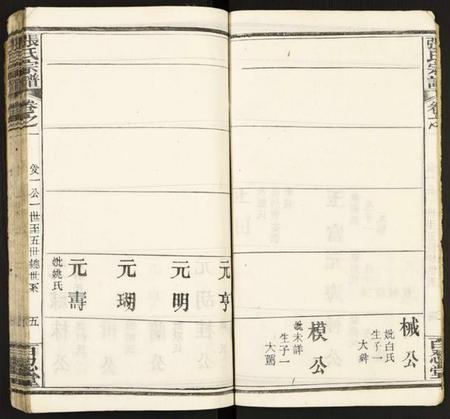 張氏宗譜
卷之
棫公
妣白氏
生子一
大
模公
妣未詳
生子一
大駕
元亨
元明
元瑚
元壽
妣姚氏
張氏宗譜
卷之一
一公一世至五世總世系
五
百忍堂
百忍堂